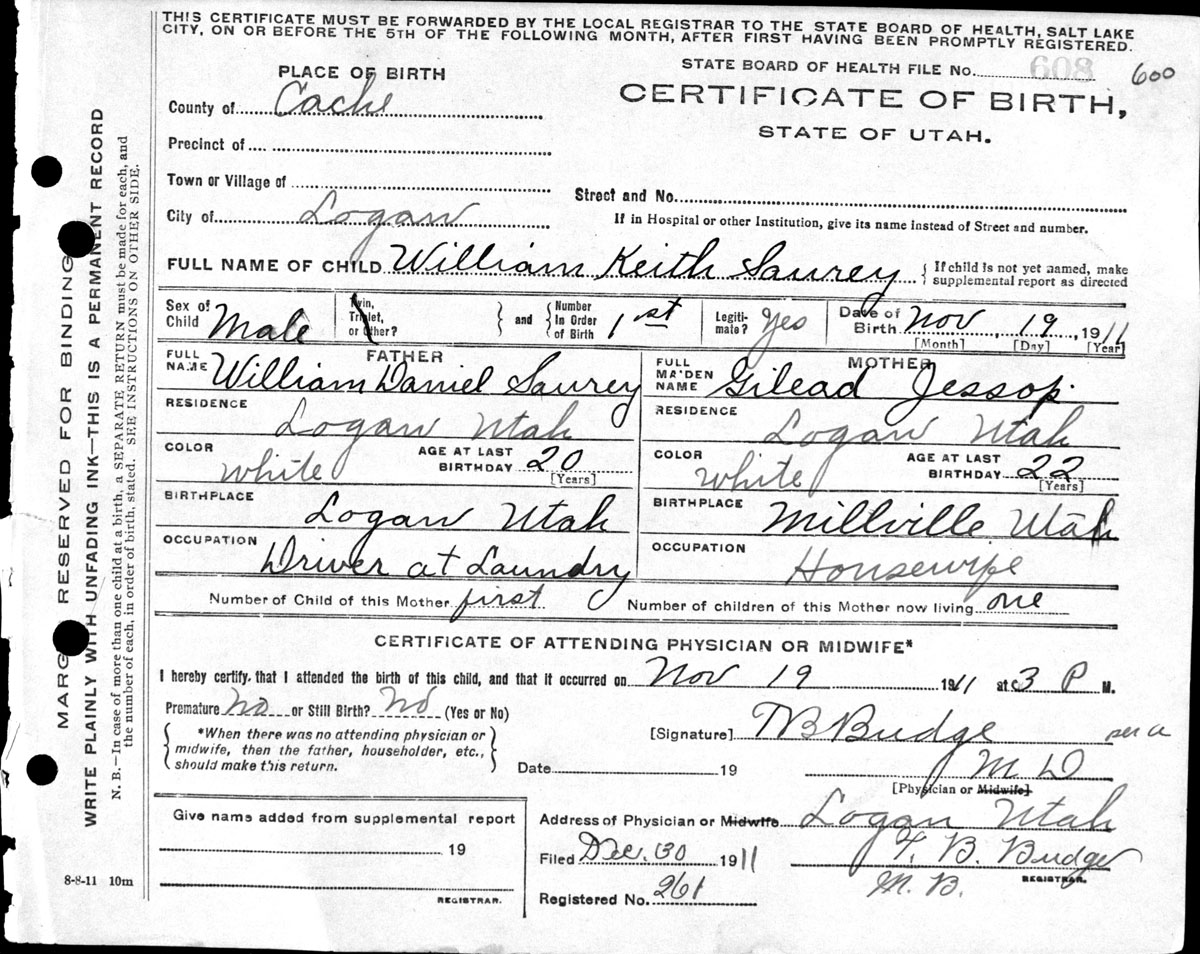 THIS CERTIFICATE MUST BE FORWARDED BY THE LOCAL REGISTRAR TO THE STATE BOARD OF HEALTH, SALT LAKE
CITY, ON OR BEFORE THE 5TH OF THE FOLLOWING MONTH, AFTER FIRST HAVING BEEN PROMPTLY REGISTERED.
STATE BOARD OF HEALTH FILE No. 608 600
PLACE OF BIRTH
CERTIFICATE OF BIRTH,
County of Cache
STATE OF UTAH.
Precinct of
Town or Village of
Street and No.
City of Logan
If in Hospital or other Institution, give its name instead of Street and number.
FULL NAME OF CHILD William Keith Saurey { If child is not yet named, make
supplemental report as directed
Sex of Child Male
Twin, Triplet, or Other? } and { Number In Order of Birth 1st
Legiti-mate? Yes
Date of Birth Nov 19, 1911
[Month] [Day] [Year]
FATHER
FULL NAME William Daniel Saurey
RESIDENCE Logan Utah
COLOR white AGE AT LAST BIRTHDAY 20 [Years]
BIRTHPLACE Logan Utah
OCCUPATION Driver at Laundry
MOTHER
FULL MAIDEN NAME Gilead Jessop.
RESIDENCE Logan Utah
COLOR white AGE AT LAST BIRTHDAY 22 [Years]
BIRTHPLACE Millville Utah
OCCUPATION Housewife
Number of Child of this Mother first Number of children of this Mother now living one
CERTIFICATE OF ATTENDING PHYSICIAN OR MIDWIFE*
I hereby certify that I attended the birth of this child, and that it occurred on Nov 19 1911 at 3 P M.
Premature No or Still Birth? No (Yes or No)
{ *When there was no attending physician or
midwife, then the father, householder, etc.,
should make this return. }
[Signature] TB Budge per a
Date 19 M D
[Physician or Midwife]
Address of Physician or Midwife Logan Utah
Filed Dec. 30 1911 T. B. Budge
M. B. REGISTRAR.
Registered No. 261
Give name added from supplemental report
19
REGISTRAR.
8-8-11 10m
MARGIN RESERVED FOR BINDING
WRITE PLAINLY WITH UNFADING INK—THIS IS A PERMANENT RECORD
N. B.—In case of more than one child at a birth, a SEPARATE RETURN must be made for each, and
the number of each, in order of birth, stated. SEE INSTRUCTIONS ON OTHER SIDE.